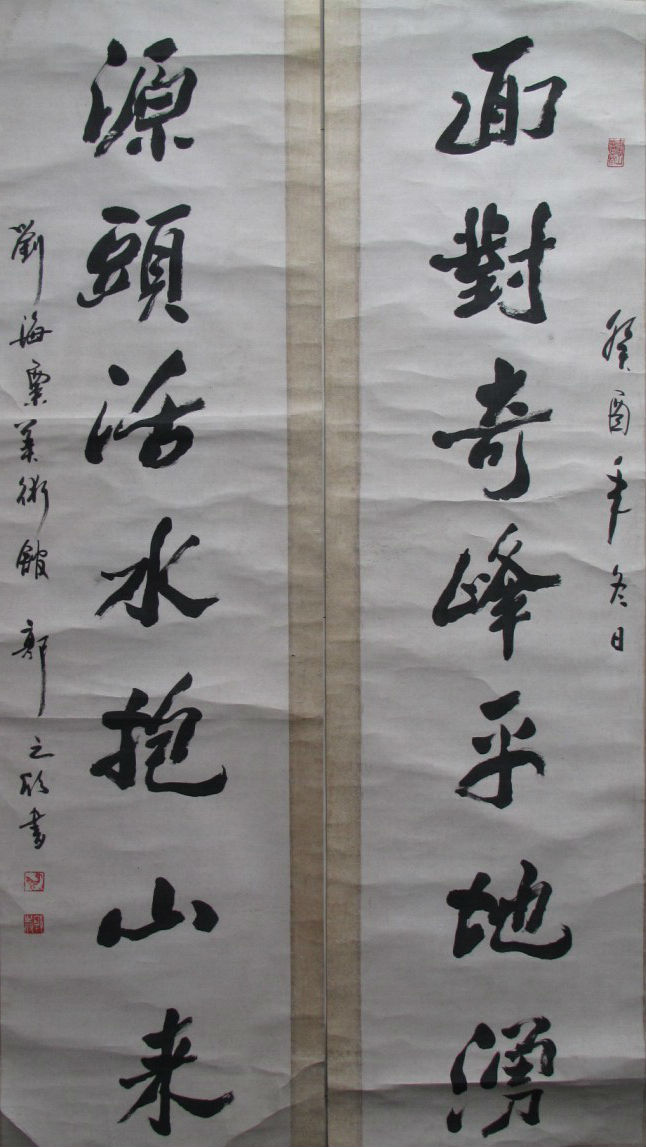 癸酉年冬日
面對奇峰平地湧
源頭活水抱山来
劉海粟美術館 郭之 書